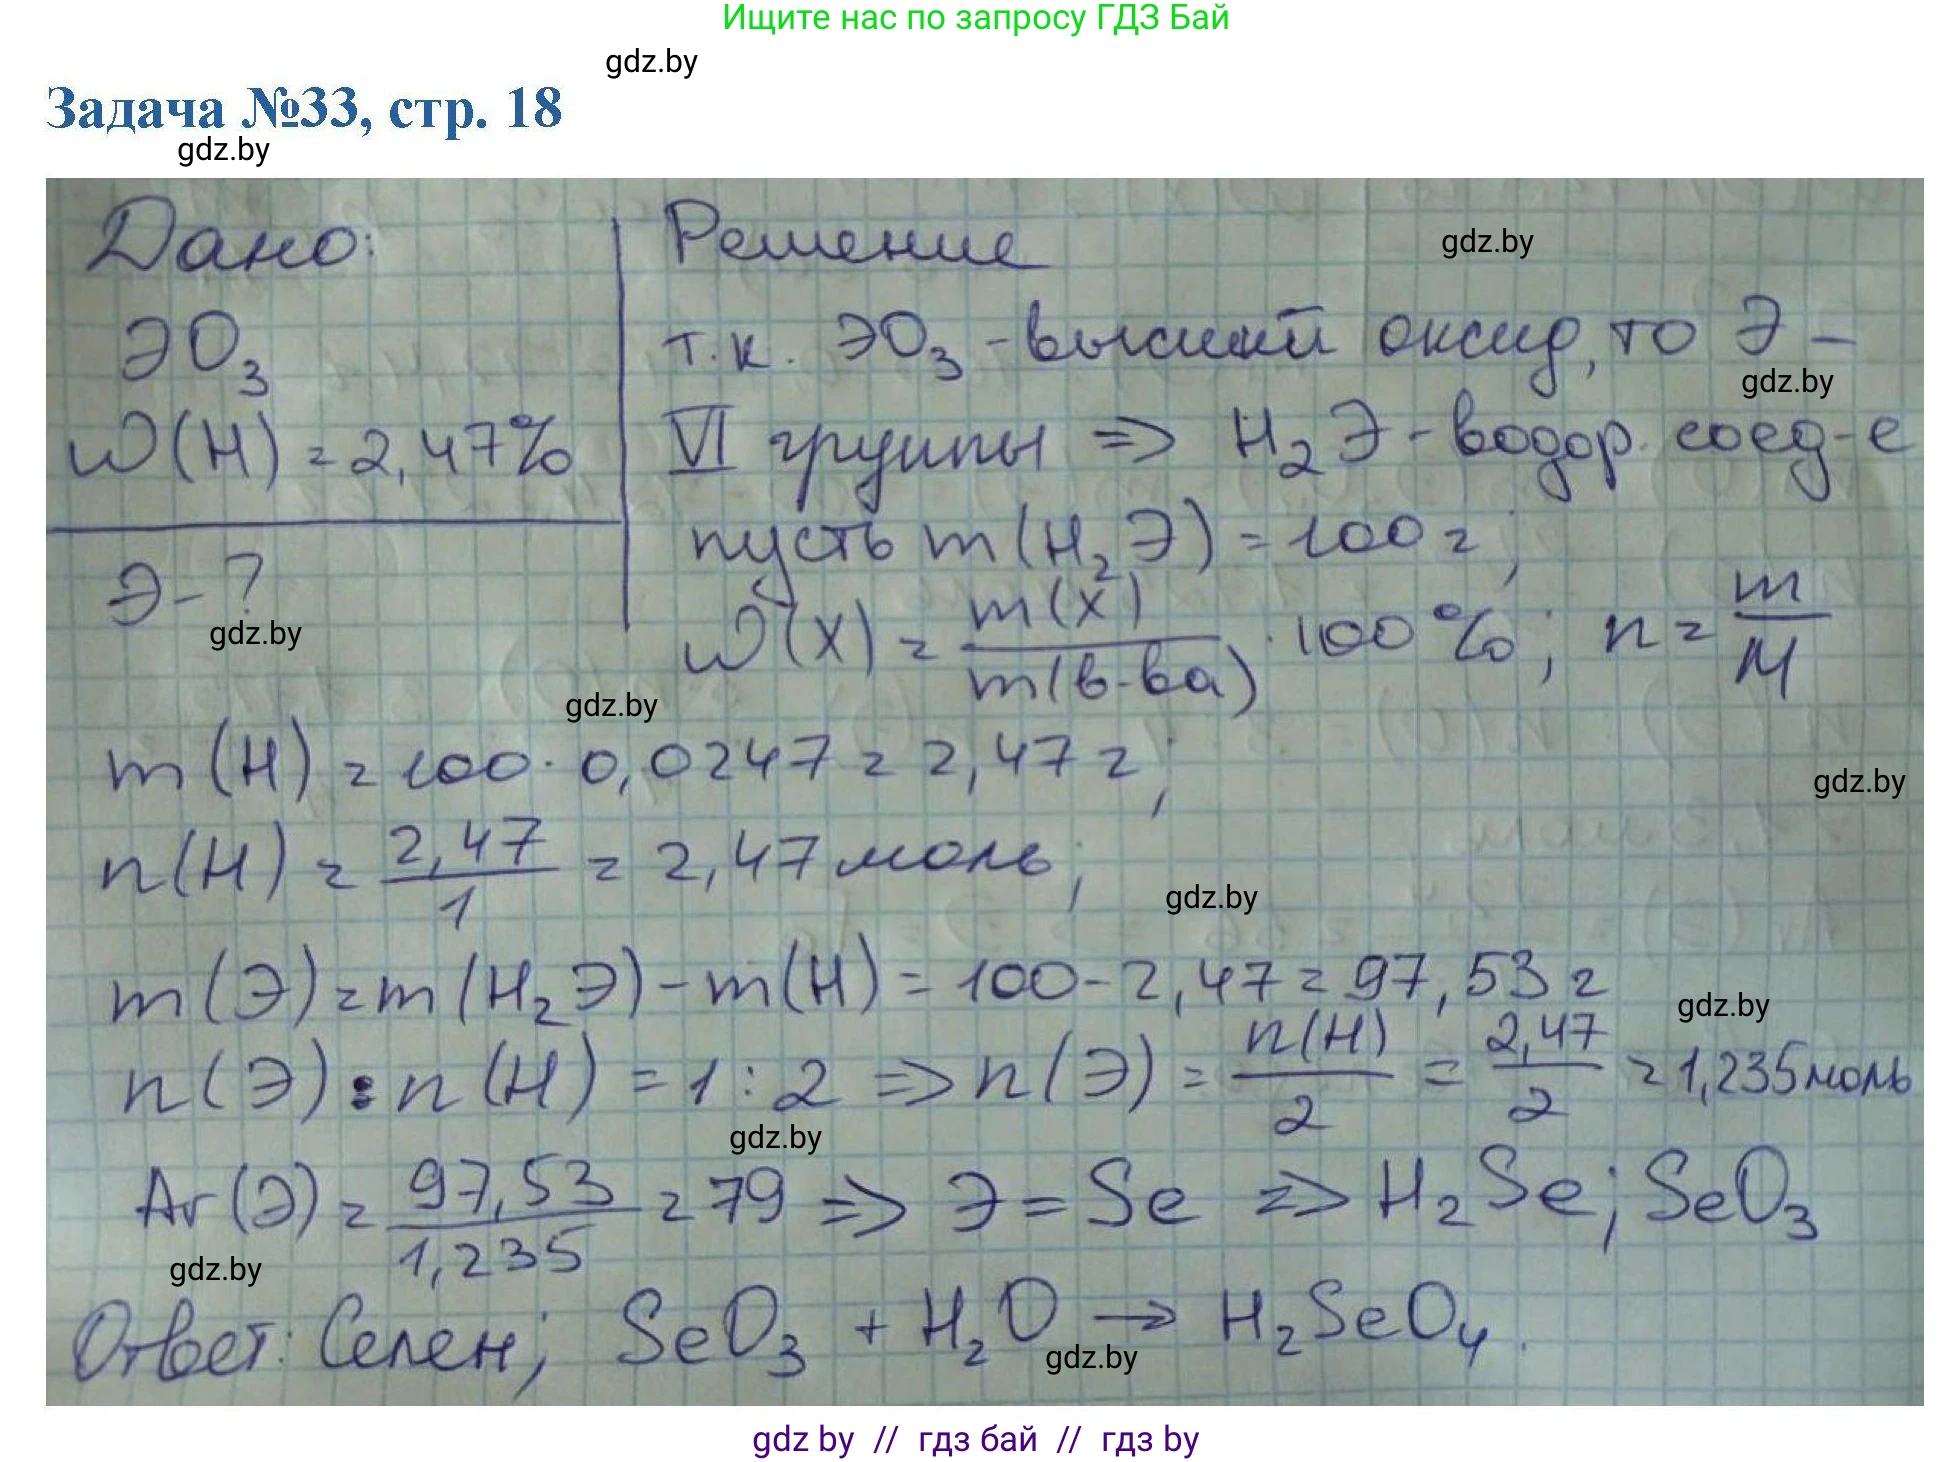 Ищите нас по запросу ГДЗ Бай
gdz.by
Задача №33, стр. 18
gdz.by
Дано:
ЭО₃
W(H) = 2,47%
Э - ?
gdz.by
Решение
gdz.by
т.к. ЭО₃ - высший оксид, то Э -
gdz.by
VI группы => H₂Э - водор. соед-е
пусть m(H₂Э) = 100 г;
W(X) = m(X) / m(в-ва) · 100%; n = m / M
gdz.by
m(H) = 100 · 0,0247 = 2,47 г;
gdz.by
n(H) = 2,47 / 1 = 2,47 моль;
gdz.by
m(Э) = m(H₂Э) - m(H) = 100 - 2,47 = 97,53 г
gdz.by
n(Э) : n(H) = 1 : 2 => n(Э) = n(H) / 2 = 2,47 / 2 = 1,235 моль
gdz.by
Ar(Э) = 97,53 / 1,235 = 79 => Э = Se => H₂Se; SeO₃
gdz.by
Ответ: Селен; SeO₃ + H₂O → H₂SeO₄.
gdz.by
gdz by // гдз бай // гдз by